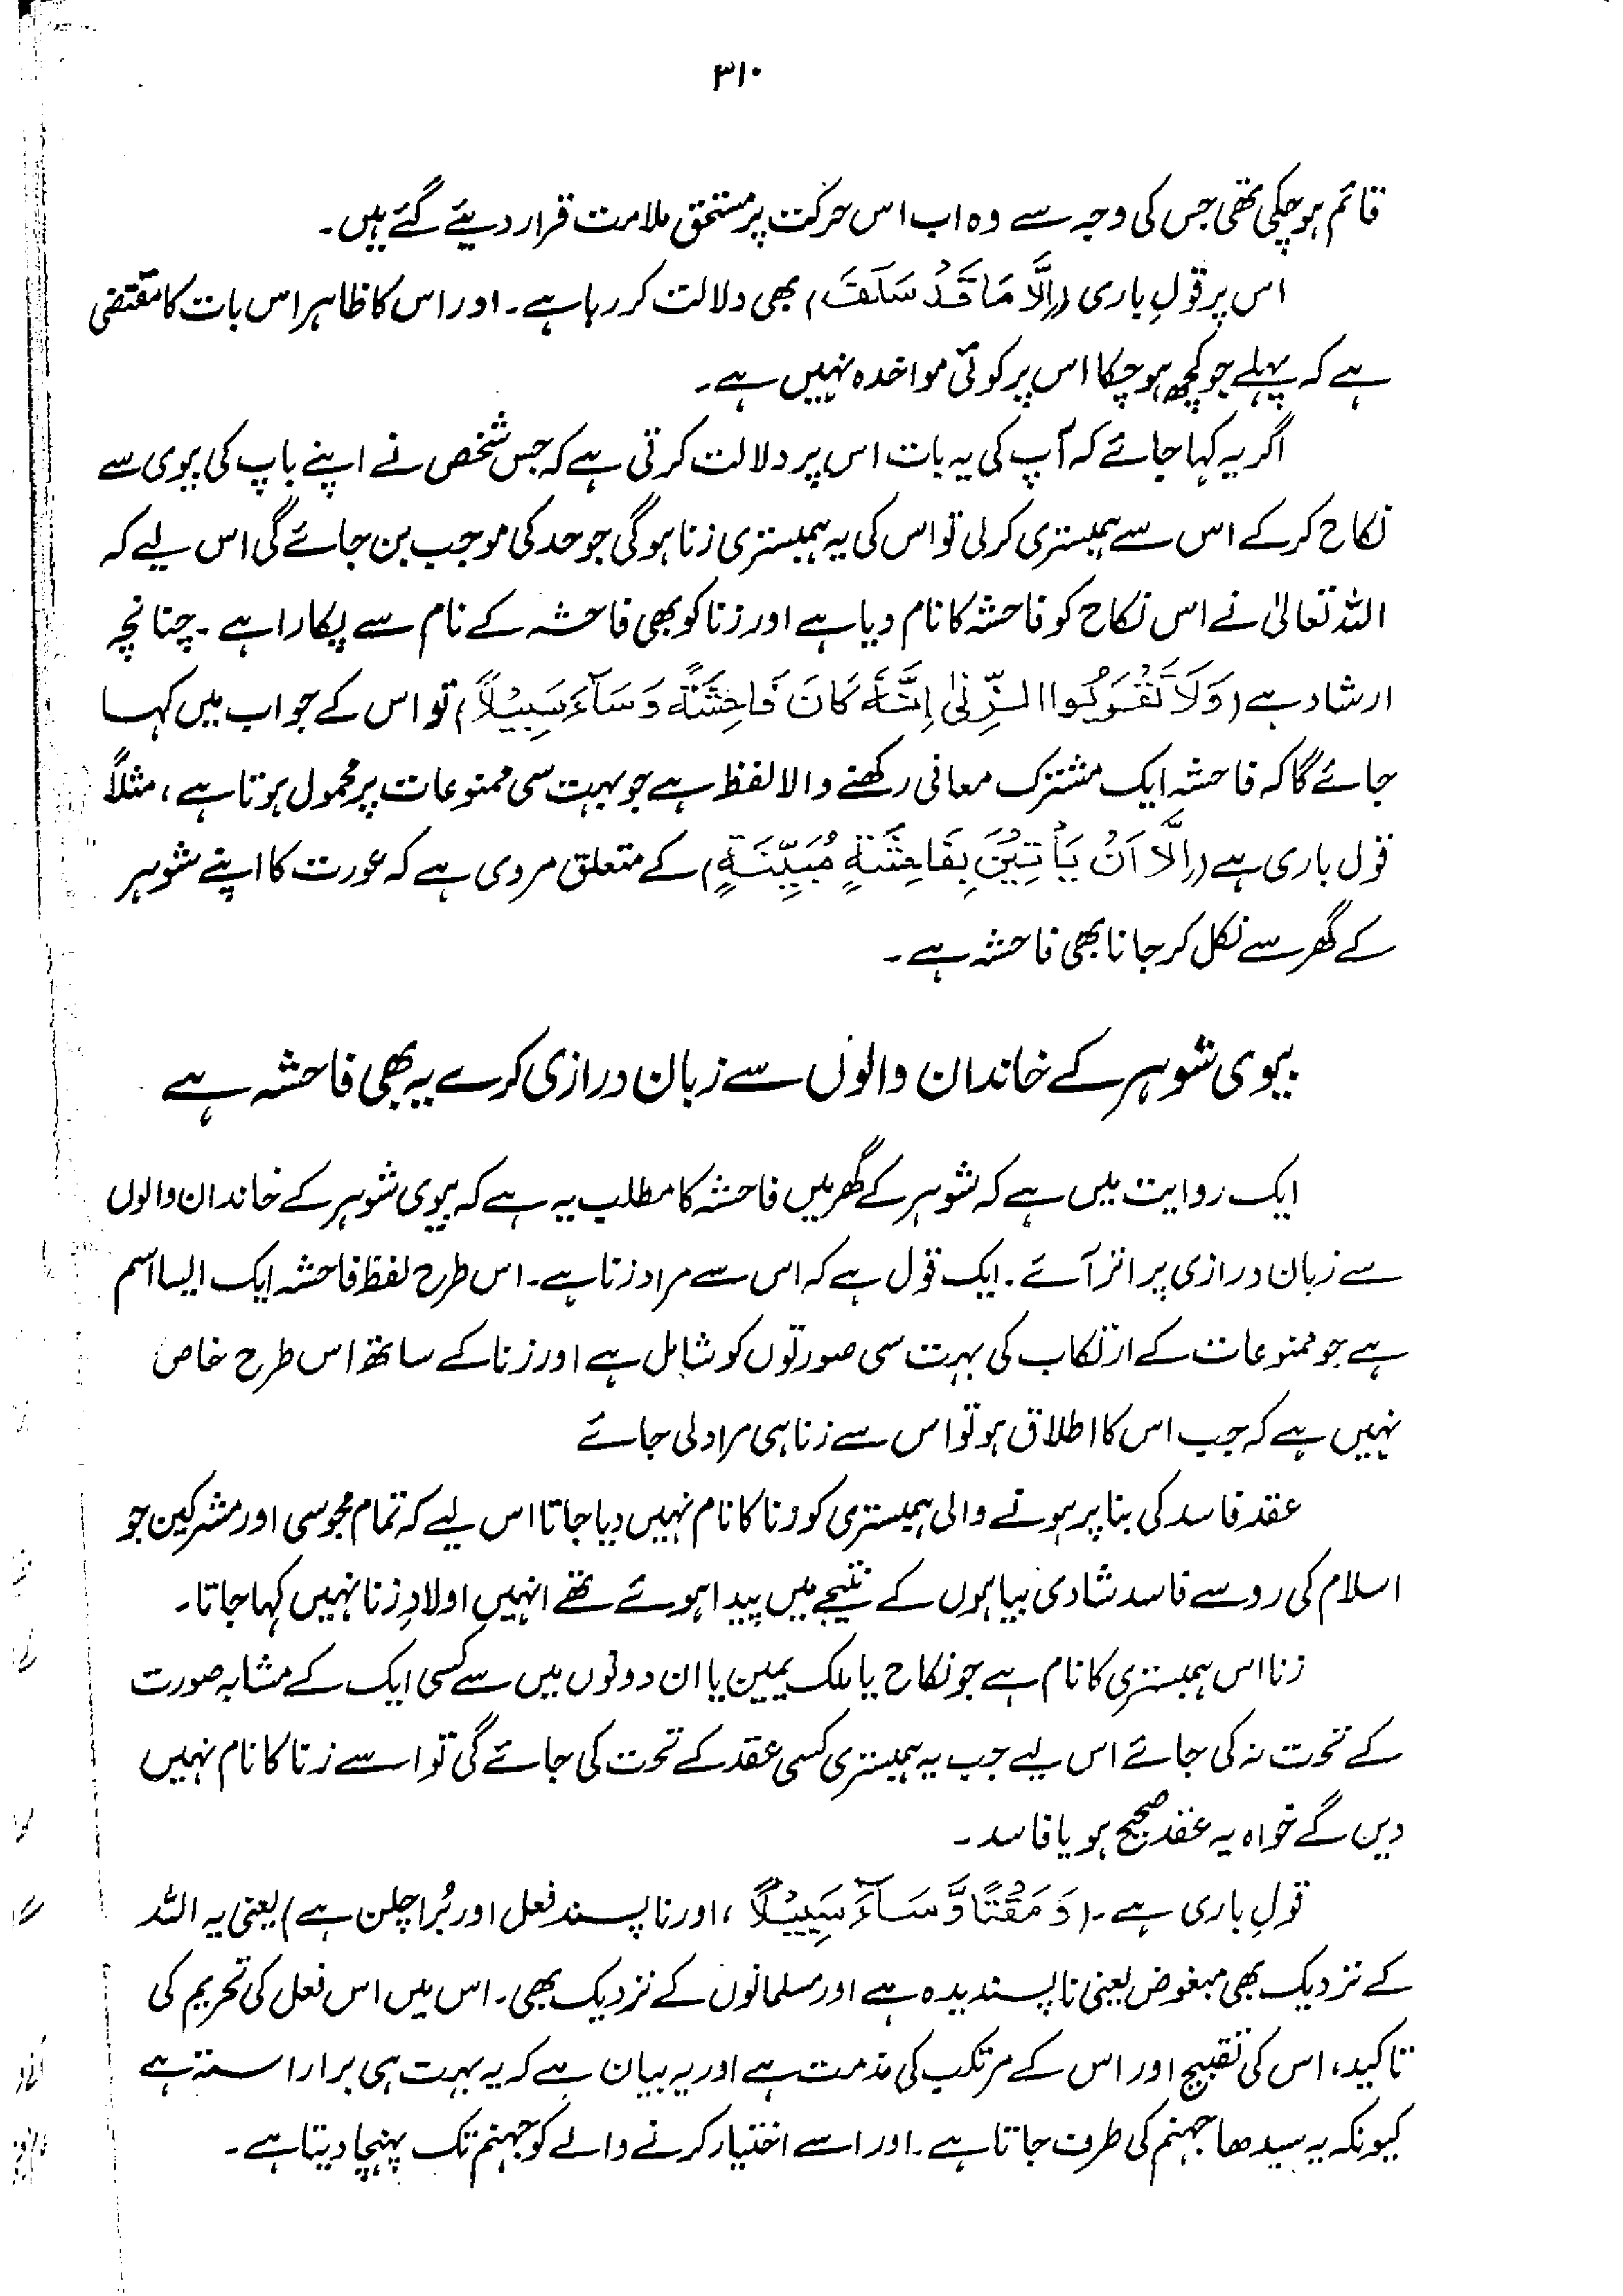 ۳۱۰
قائم ہوچکی تھی جس کی وجہ سے وہ اب اس حرکت پر مستحق ملامت قرار دیئے گئے ہیں۔
اس پر قولِ باری (اِلَّا مَا قَدْ سَلَفَ) بھی دلالت کر رہا ہے۔ اور اس کا ظاہر اس بات کا مقتضی
ہے کہ پہلے جو کچھ ہوچکا اس پر کوئی مواخذہ نہیں ہے۔
اگر یہ کہا جائے کہ آپ کی یہ بات اس پر دلالت کرتی ہے کہ جس شخص نے اپنے باپ کی بیوی سے
نکاح کرکے اس سے ہمبستری کرلی تو اس کی یہ ہمبستری زنا ہوگی جو حد کی موجب بن جائے گی اس لیے کہ
اللہ تعالیٰ نے اس نکاح کو فاحشہ کا نام دیا ہے اور زنا کو بھی فاحشہ کے نام سے پکارا ہے۔ چنانچہ
ارشاد ہے (وَلَا تَقْرَبُوا الزِّنٰی اِنَّہٗ کَانَ فَاحِشَۃً وَسَآءَ سَبِیْلًا) تو اس کے جواب میں کہا
جائے گا کہ فاحشہ ایک مشترک معانی رکھنے والا لفظ ہے جو بہت سی ممنوعات پر محمول ہوتا ہے، مثلاً
قول باری ہے (اِلَّا اَنْ یَاْتِیْنَ بِفَاحِشَۃٍ مُبَیِّنَۃٍ) کے متعلق مروی ہے کہ عورت کا اپنے شوہر
کے گھر سے نکل کر جانا بھی فاحشہ ہے۔
بیوی شوہر کے خاندان والوں سے زبان درازی کرے یہ بھی فاحشہ ہے
ایک روایت میں ہے کہ شوہر کے گھر میں فاحشہ کا مطلب یہ ہے کہ بیوی شوہر کے خاندان والوں
سے زبان درازی پر اتر آئے۔ ایک قول ہے کہ اس سے مراد زنا ہے۔ اس طرح لفظ فاحشہ ایک ایسا اسم
ہے جو ممنوعات کے ارتکاب کی بہت سی صورتوں کو شامل ہے اور زنا کے ساتھ اس طرح خاص
نہیں ہے کہ جب اس کا اطلاق ہو تو اس سے زنا ہی مراد لی جائے
عقد فاسد کی بنا پر ہونے والی ہمبستری کو زنا کا نام نہیں دیا جاتا اس لیے کہ تمام مجوسی اور مشرکین جو
اسلام کی رو سے فاسد شادی بیاہوں کے نتیجے میں پیدا ہوئے تھے انہیں اولادِ زنا نہیں کہا جاتا۔
زنا اس ہمبستری کا نام ہے جو نکاح یا ملک یمین یا ان دونوں میں سے کسی ایک کے مشابہ صورت
کے تحت نہ کی جائے اس لیے جب یہ ہمبستری کسی عقد کے تحت کی جائے گی تو اسے زنا کا نام نہیں
دیں گے خواہ یہ عقد صحیح ہو یا فاسد۔
قولِ باری ہے۔ (وَمَقْتًا وَّسَآءَ سَبِیْلًا، اور ناپسند فعل اور بُرا چلن ہے) یعنی یہ اللہ
کے نزدیک بھی مبغوض یعنی ناپسندیدہ ہے اور مسلمانوں کے نزدیک بھی۔ اس میں اس فعل کی تحریم کی
تاکید، اس کی تقبیح اور اس کے مرتکب کی مذمت ہے اور یہ بیان ہے کہ یہ بہت ہی برا راستہ ہے
کیونکہ یہ سیدھا جہنم کی طرف جاتا ہے۔ اور اسے اختیار کرنے والے کو جہنم تک پہنچا دیتا ہے۔